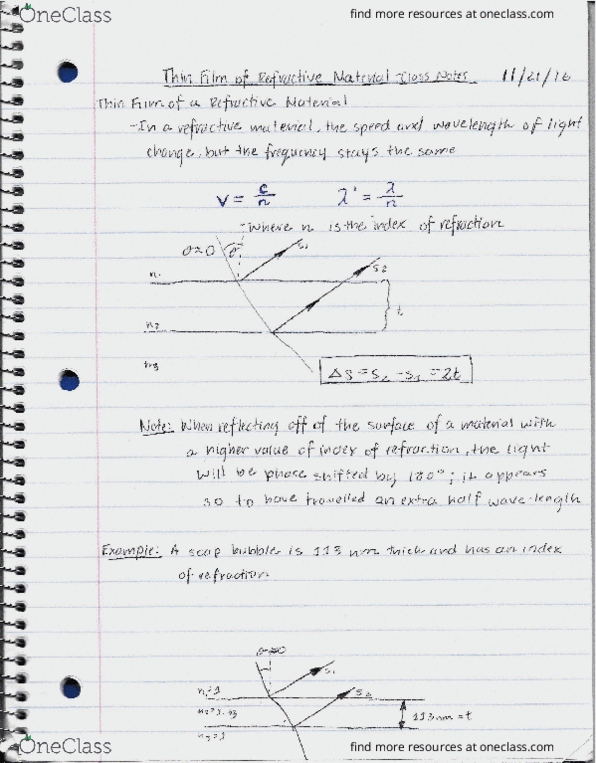 OneClass
find more resources at oneclass.com
Thin Film of Refractive Material Class Notes 11/21/16
Thin Film of a Refractive Material
-In a refractive material, the speed and wavelength of light
change, but the frequency stays the same
v = c/n λ' = λ/n
-where n is the index of refraction
θ≈0 θ s₁
s₂
n₁
t
n₂
n₃
Δs = s₂ - s₁ = 2t
Note: When reflecting off of the surface of a material with
a higher value of index of refraction, the light
will be phase shifted by 180°; it appears
so to have travelled an extra half wave-length
Example: A soap bubble is 113 nm thick and has an index
of refraction
θ≈0
s₁
n₁=1 s₂
113nm = t
n₃=1
OneClass
find more resources at oneclass.com